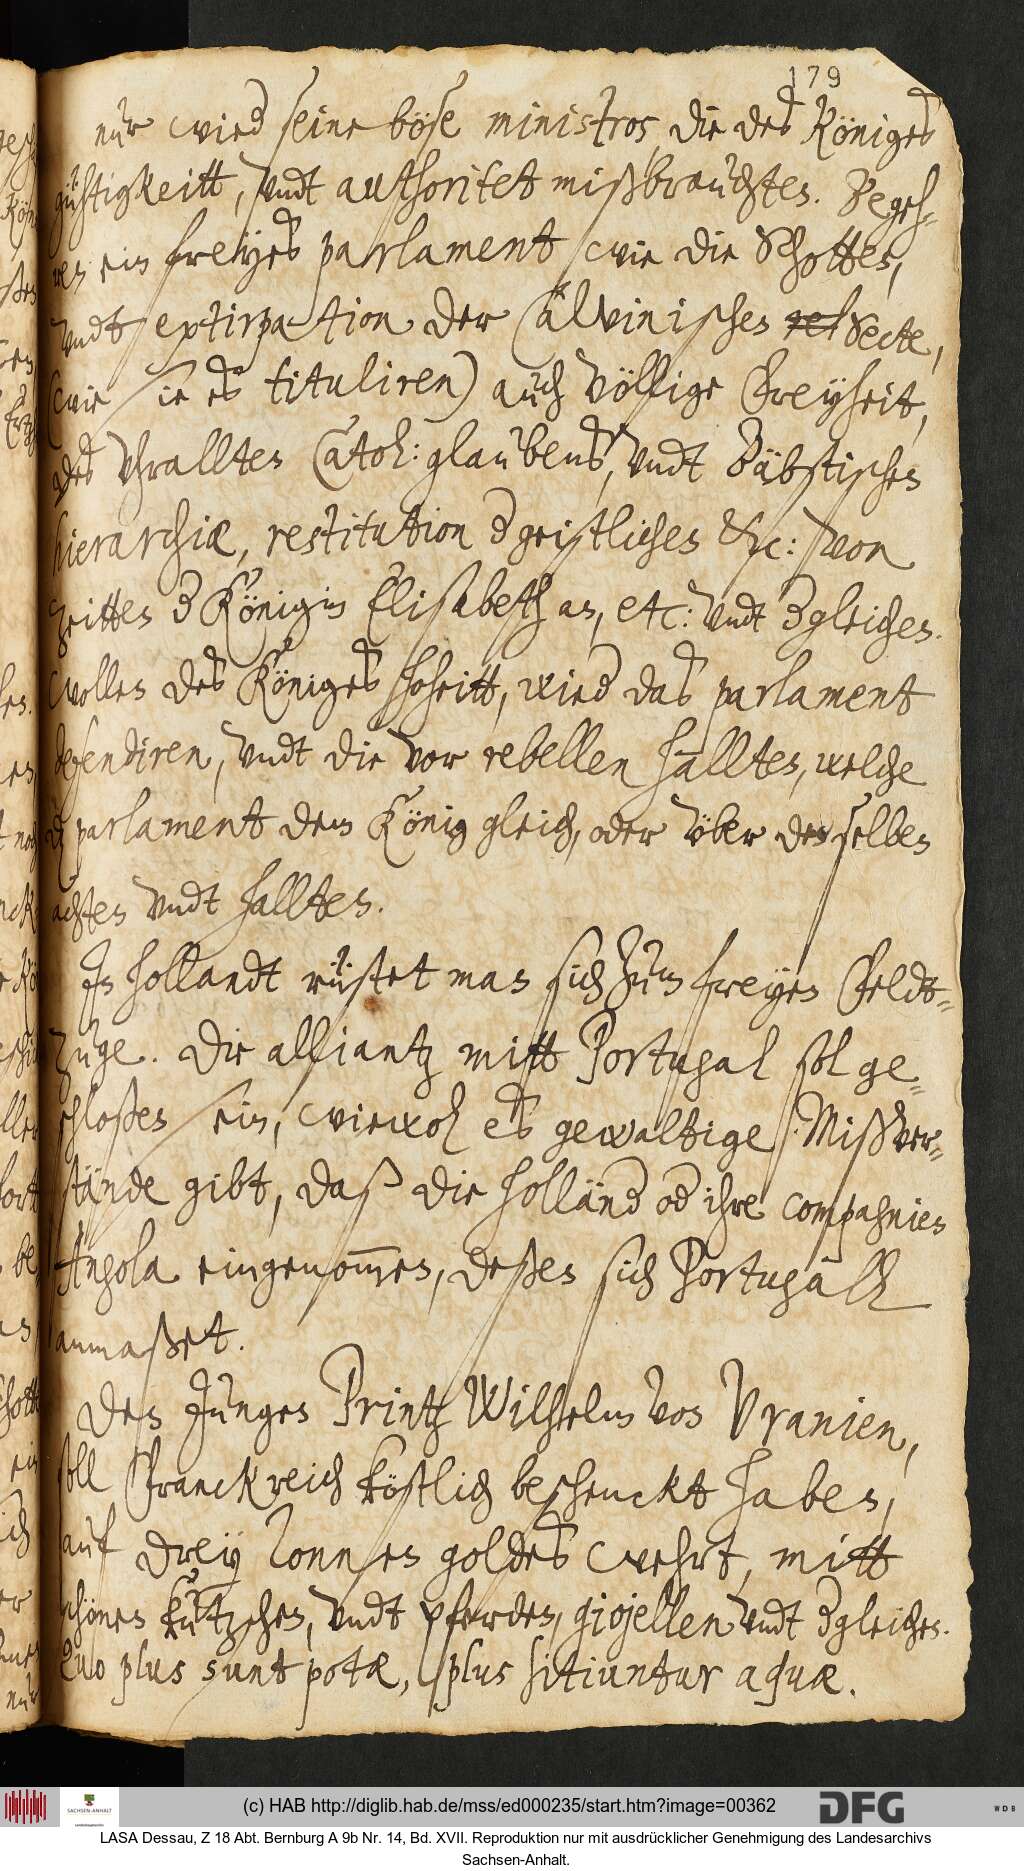 179
nur wied seine böse ministros, die des Königes
gühtigkeitt, vndt authoritet mißbrauchten. Begeh-
ren ein freyes parlament wie die Schotten,
vndt extirpation der Calvinischen Secte,
(wie sie es tituliren) auch völlige Freyheit,
des vhrallten Catoh: glaubens, vndt Bäbstischen
hierarchiæ, restitution d geistlichen &c: von
zeitten d Königin Elisabeth an, etc: vndt dgleichen.
wollen des Königes hoheitt, wied das parlament
defendiren, vndt die vor rebellen hallten, welche
parlament dem König gleich, oder vber denselben
achten vndt hallten.
In Hollandt rüstet man sich zum freyen Feldt-
zuge. Die alliantz mitt Portugal sol ge-
schloßen sein, wiewol es gewaltige Mißver-
stände gibt, daß die Holländ od ihre compagnien
Angola eingenom̅en, deßen sich Portugall
anmaßet.
Den Jungen Printz Wilhelm von Vranien,
soll Franckreich köstlich beschenckt haben,
auf drey Tonnen goldes wehrt, mitt
schönen kutzschen, vndt pferden, giojellen vndt dgleichen.
Quo plus sunt potæ, plus sitiuntur aquæ.
(c) HAB http://diglib.hab.de/mss/ed000235/start.htm?image=00362
SACHSEN-ANHALT
DFG
WDB
LASA Dessau, Z 18 Abt. Bernburg A 9b Nr. 14, Bd. XVII. Reproduktion nur mit ausdrücklicher Genehmigung des Landesarchivs
Sachsen-Anhalt.